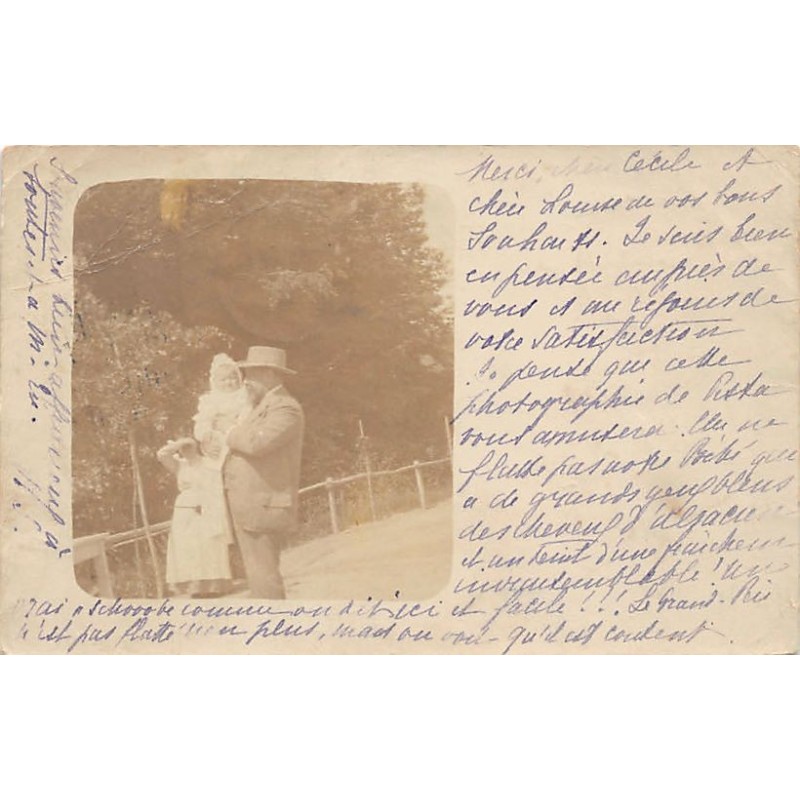 Merci, chère Cécile et
chère Louise de vos bons
Souhaits. Je suis bien
en pensée auprès de
vous et me réjouis de
votre satisfaction
Je pense que cette
photographie de
vous amusera. On ne
flatte pas votre Bébé qui
a de grands yeux bleus
des cheveux d'
et un teint d'une fraîcheur
invraisemblable! Un
vrai comme on dit ici et facile!!! Le Grand-Père
n'est pas flatté non plus, mais on voit qu'il est content.
beaucoup à
toutes et à